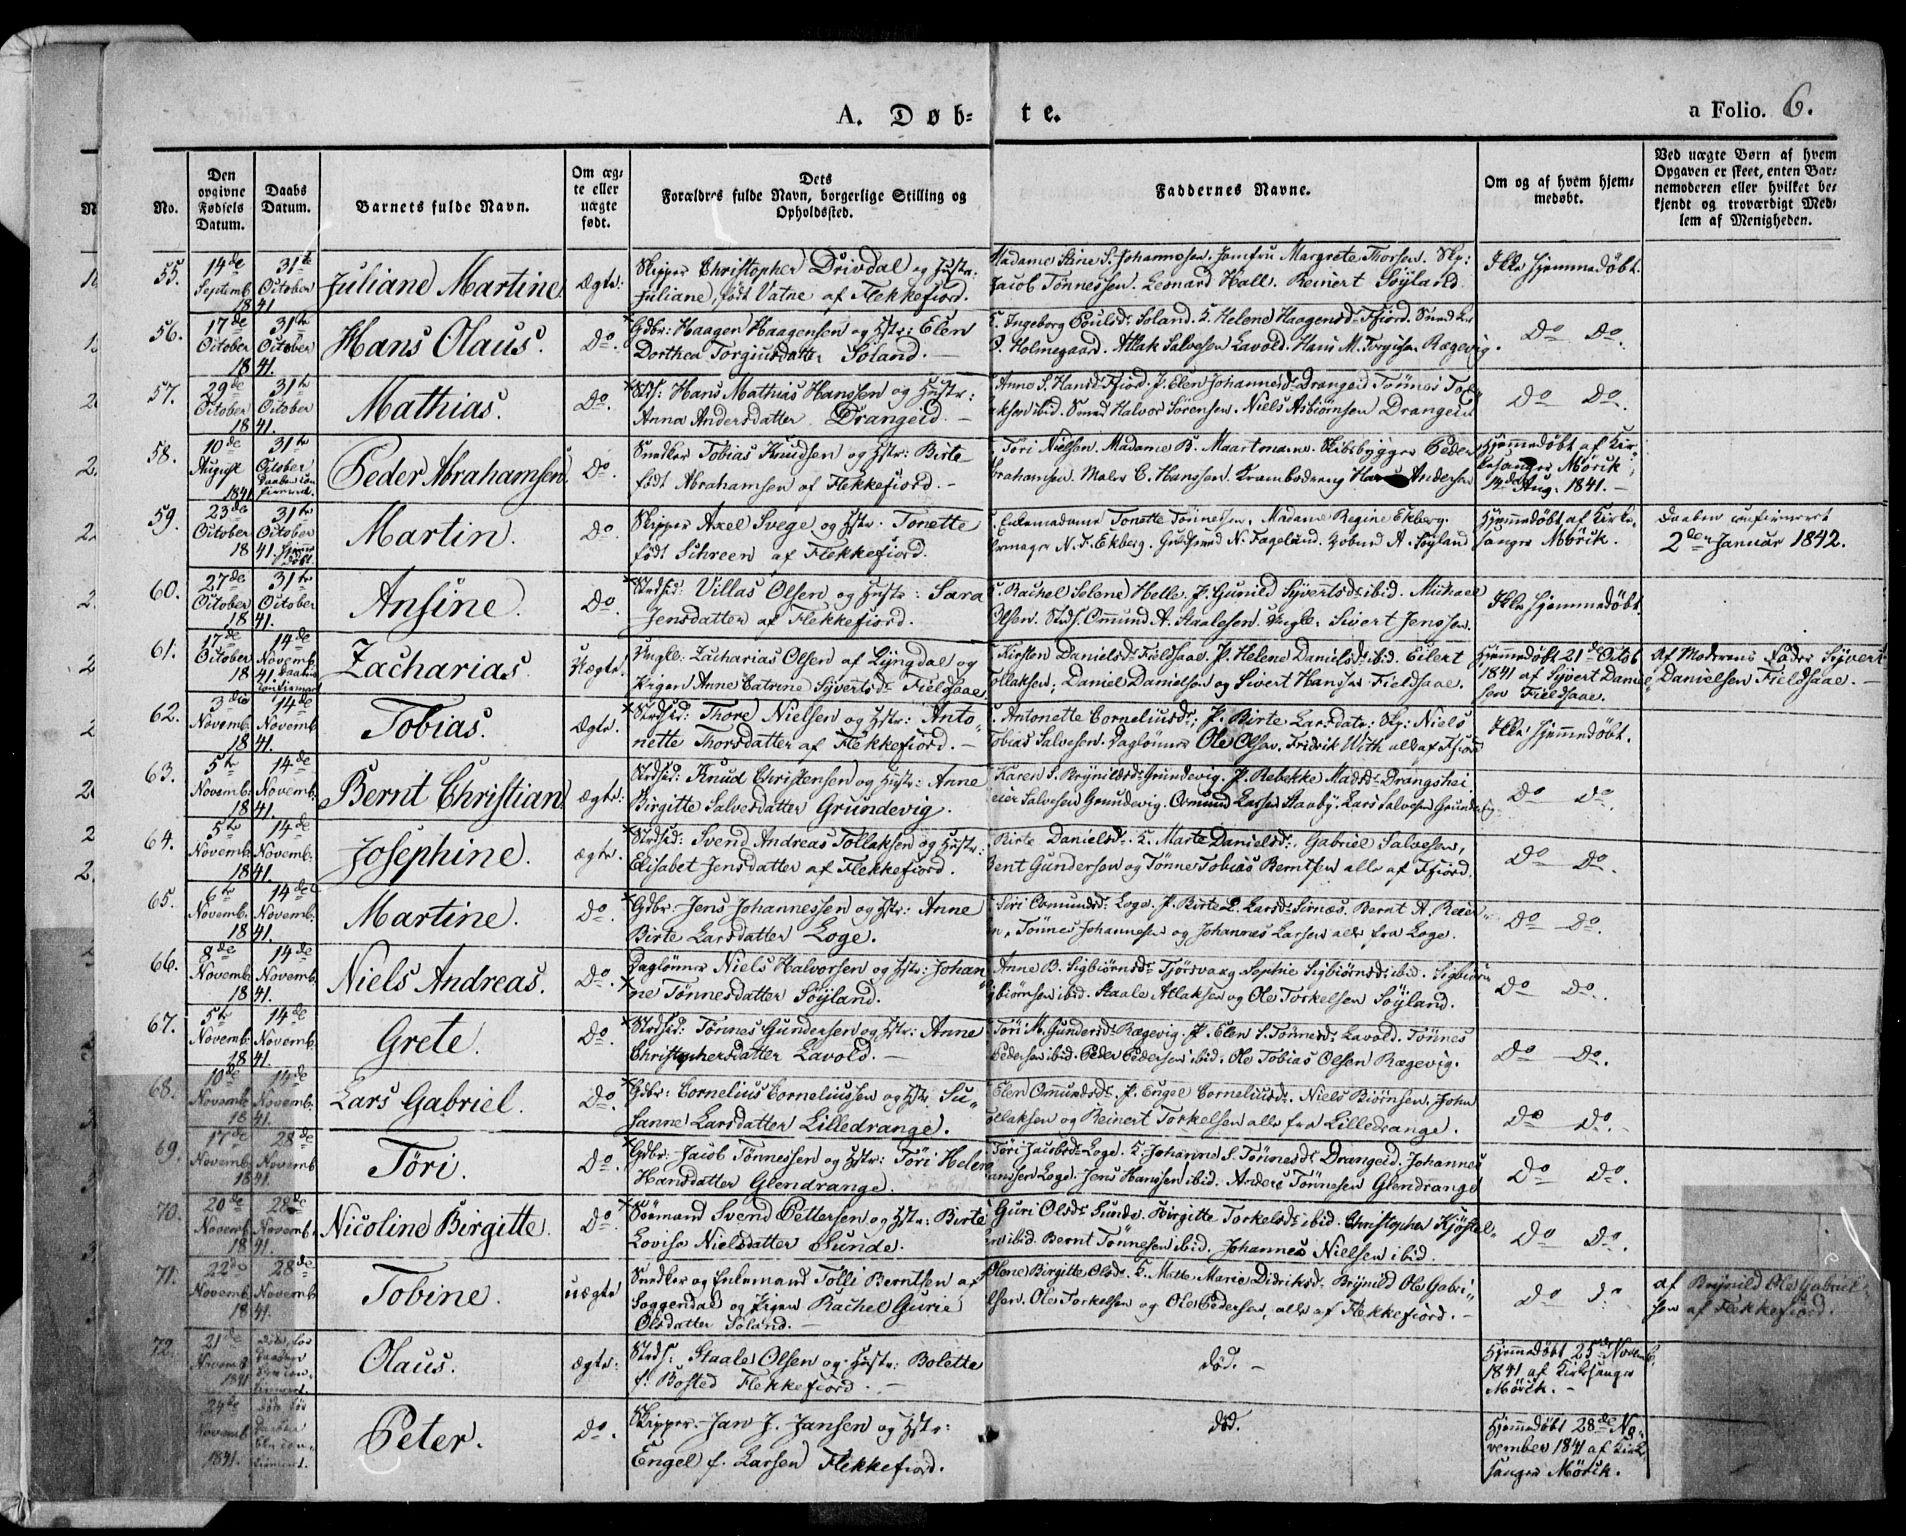 A. Døb- te. a Folio. 6.
No.
Den opgivne Fødsels Datum.
Daabs Datum.
Barnets fulde Navn.
Om ægte eller uægte født.
Dets Forældres fulde Navn, borgerlige Stilling og Opholdssted.
Faddernes Navne.
Om og af hvem hjemmedøbt.
Ved uægte Børn af hvem Opgaven er skeet, enten Barnemoderen eller hvilket bekjendt og troværdigt Medlem af Menigheden.
55. 14de Septemb. 1841. 31te October Juliane Martine. Ægte.
Skipper Christopher Drivdal og Hustr:
Juliane, født Vatne af Flekkefiord.
Madame Stine S. Johannesen. Jomfru Margrete Thorsen. Sk:
Jacob Tønnessen. Leonard Hall. Reinert Søyland.
Ikke hjemmedøbt.
56. 17de October 1841. 31te October Hans Olaus. Do.
Gdbr: Haagen Haagensen og Hstr: Elen
Dorthea Torgiusdatter Soland.
Ingeborg Poulsd: Soland. Helene Haagensd: Ffiord.
Holmegaard. Atlak Salvesen Lavold. Hans M. Torgiusen Rægevig.
Do Do.
57. 29de October 1841. 31te October Mathias. Do.
Strs: Hans Mathias Hanssen og Hustr:
Anna Andersdatter Drangeid.
Anne S. Hansd: Ffiord. P. Elen Johannesd: Drangeid Tønnes
ibid. Smed Halvor Sørensen. Niels Asbiørnsen Drangeid
Do Do.
58. 10de August 1841. 31te October Daaben confirmeret. Peder Abrahamsen. Do
Snedker Tobias Knudsen og Hstr: Birte
født Abrahamsen af Flekkefiord.
Tøri Nielsen. Madame B. Maartmann. Skibsbygger Peder
Abrahamsen. Maler C. Hanssen. Andersen
Hjemmedøbt af Kirkesanger Mörik, 14de Aug. 1841.
59. 23de October 1841. 31te October Martin. Do
Skipper Axel Svege og Hstr: Tonette
født Schreen af Flekkefiord.
Enkemadame Tonette Tønnessen. Madame Regine Ekberg.
N. F. Ekberg. Guldsmed N. Fageland. A. Søyland
Hjemmedøbt af Kirkesanger Mörik.
Daaben confirmeret
2den Januar 1842.
60. 27de October 1841. 31te October Ansine. Do.
Strsid: Villas Olsen og Hustr: Sara
Jensdatter af Flekkefiord.
Rachel Selene Helle. P. Gunild Syvertsd: ibid. Michael
Olsen. Strs. Omund A. Staalesen. Ungk: Sivert Jenssen.
Ikke hjemmedøbt
61. 17de October 1841. 14de Novemb. Daaben confirmeret Zacharias. Uægte.
Ungk: Zacharias Olsen af Lyngdal og
Pigen Anne Catrine Syvertsd: Fieldsaae
Kirsten Danielsd: Fieldsaae. P. Helene Danielsd: ibid. Eilert
Tollaksen; Daniel Danielsen og Sivert Hansen Fieldsaae.
Hjemmedøbt 21de Octob 1841 af Syvert Danielsen Fieldsaae.
Af Moderens Fader Syvert
Danielsen Fieldsaae.
62. 3die Novemb. 1841. 14de Novemb. Tobias. Ægte.
Strdsid: Thore Nielsen og Hstr: Anto
nette Thorsdatter af Flekkefiord.
Antonette Corneliusd:; P. Birte Larsdatr; Sk: Niels
Tobias Salvesen. Daglønner Ole Olsen. Fridrik With alle af Ffiord
Ikke hjemmedøbt.
63. 5te Novemb. 1841. 14de Novemb. Bernt Christian. ægte:
Strdsid: Knud Christensen og Hustr: Anne
Birgitte Salvesdatter Grundevig.
Karen S. Brynildsd: Grundevig. P. Rebekke Madsd: Drangshei
Salvesen Grundevig. Osmund Larsen Staaby. Lars Salvesen Grundevig
Do Do.
64. 5te Novemb. 1841. 14de Novemb. Josephine. ægte.
Strdsid: Svend Andreas Tollaksen og Hstr:
Elisabet Jensdatter af Flekkefiord.
Birte Danielsd. Marte Danielsd:. Gabriel Salvesen,
Bent Gundersen og Tønne Tobias Berntsen alle af Ffiord.
Do Do.
65. 6te Novemb. 1841. 14de Novemb. Martine. Do.
Gdbr. Jens Johannessen og Hstr: Anne
Birte Larsdatter Loge.
Siri Osmundsd: Loge. P. Birte L. Larsd: Sirnæs. Bernt A.
Tønnes Johannesen og Johannes Larsen alle fra Loge.
Do Do.
66. 8de Novemb. 1841. 14de Novemb. Niels Andreas. Do.
Daglønner Niels Halvorsen og Hstr: Johan
ne Tønnesdatter Søyland.
Anne B. Sigbiørnsd: Tjørsvaag Sophie Sigbiørnsd: ibid. Sigbiørn
Sigbiørnsen ibid. Staale Atlaksen og Ole Torkelsen Søyland.
Do Do.
67. 5te Novemb. 1841. 14de Novemb. Grete. Do.
Strdsid: Tønnes Gundersen og Hstr: Anne
Christophersdatter Lavold.
Tøri M. Gundersd: Rægevig. P. Elen S. Tønnesd: Lavold. Tønnes
Pedersen ibid. Peder Pedersen ibid. Ole Tobias Olsen Rægevig.
Do Do.
68. 10de Novemb. 1841. 14de Novemb. Lars Gabriel. Do.
Gdbr: Cornelius Corneliussen og Hstr. Su
sanne Larsdatter Lilledrange.
Elen Omundsd: P. Engel Corneliusd:. Niels Biørnsen. John
Tollaksen og Reinert Torkelsen alle fra Lilledrange.
Do Do.
69. 17de Novemb. 1841. 28de Novemb Tøri. Do.
Gdbr. Jacob Tønnessen og Hstr: Tøri Helene
Hansdatter Glendrange.
Tøri Jacobsd: Loge. Johanne S. Tønnesd: Drangeid. Johannes
Hanssen Loge. Jens Hanssen ibid. Anders Tønnesen Glendrange
Do Do.
70. 20de Novemb. 1841. 28de Novemb. Nicoline Birgitte. Do.
Sømand Svend Pettersen og Hstr: Birte
Lovise Nielsdatter Sunde.
Guri Olsd: Sunde. Birgitte Torkelsd: ibid. Christopher Kjøstel-
sen ibid. Bernt Tønnesen ibid. Johannes Nielsen ibid.
Do Do.
71. 22de Novemb. 1841. 28de Novemb. Tobine. uægte
Snedker og Enkemand Tølli Berntsen af
Soggendal og Pigen Rachel Gurie
Olsdatter Soland.
Olene Birgitte Olsd:. Mette Marie Didriksd. Brynild Ole Gabri
elsen. Ole Torkelsen og Ole Pedersen, alle af Flekkefiord.
Do Do
af Brynild Ole Gabriel-
sen af Flekkefiord.
72. 21de Novemb 1841 Død før Daaben blev confirmeret. Olaus. ægte:
Strds: Staale Olsen og Hustr: Bolette
f. Bosted Flekkefiord.
død.
Hjemmedøbt 25de Novemb. 1841 af Kirkesanger Mörik.
24de Novemb 1841. Død før Daaben blev confirmeret. Peter. Do.
Skipper Jan J. Jansen og Hstr:
Engel f. Larsen Flekkefiord.
død.
Hjemmedøbt 28de November 1841 af Kirkesanger Mörik.